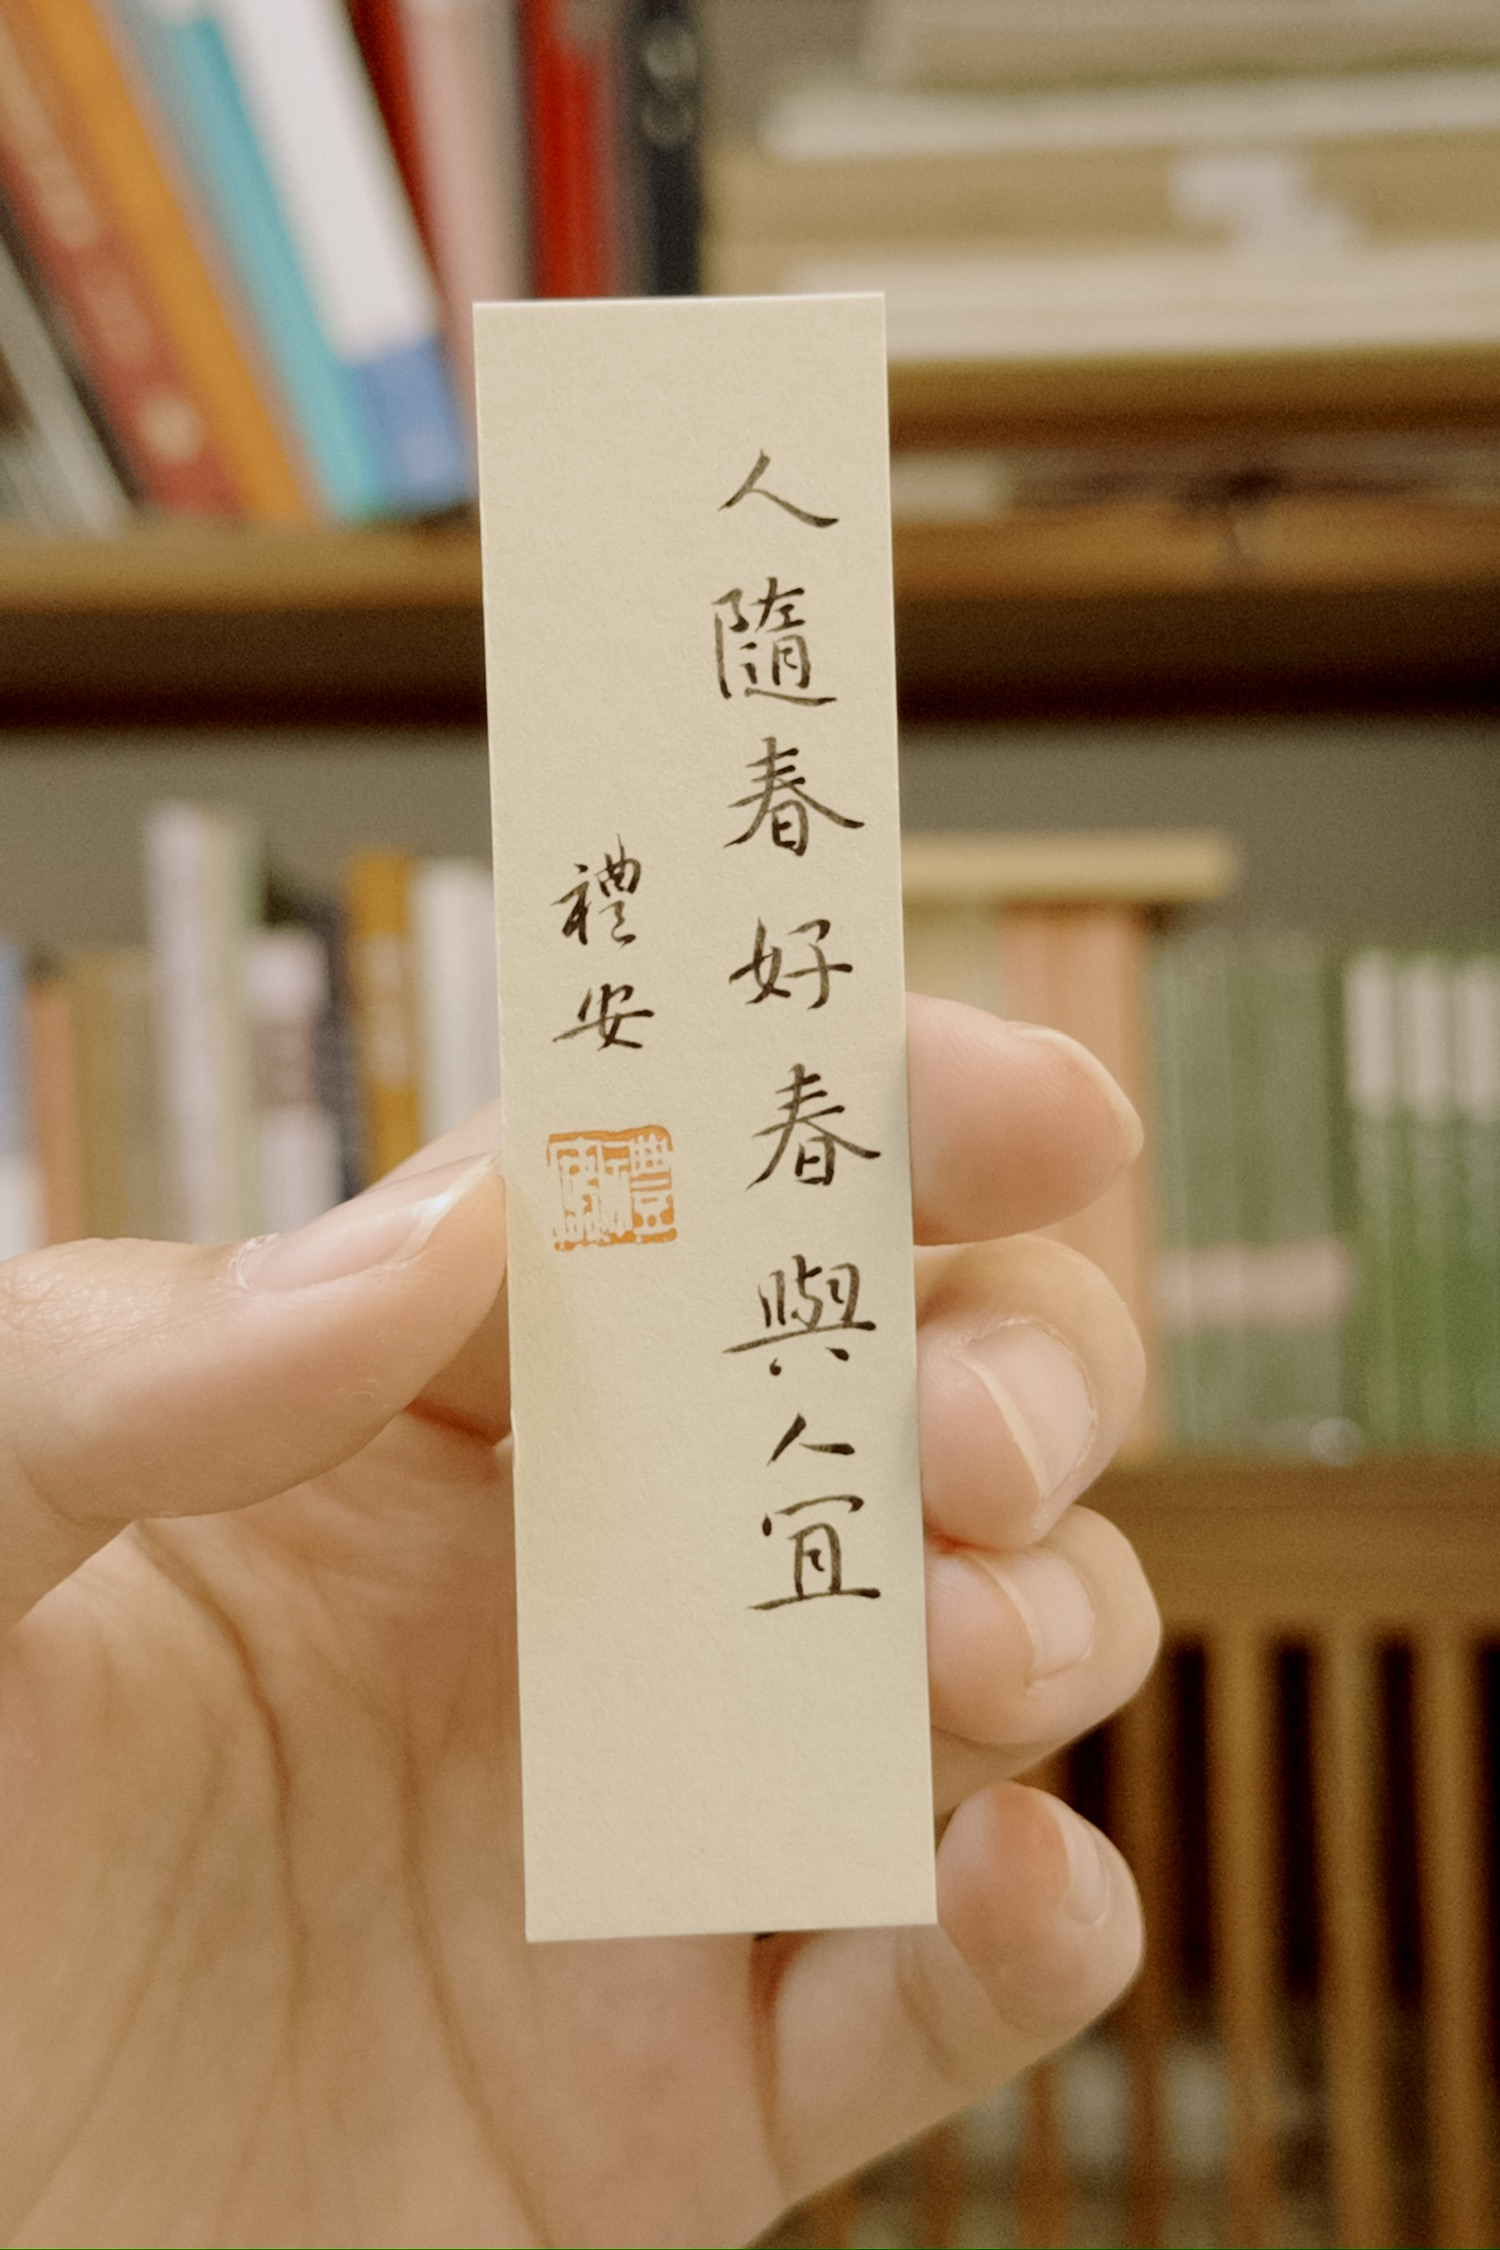 人隨春好春與人宜
禮安